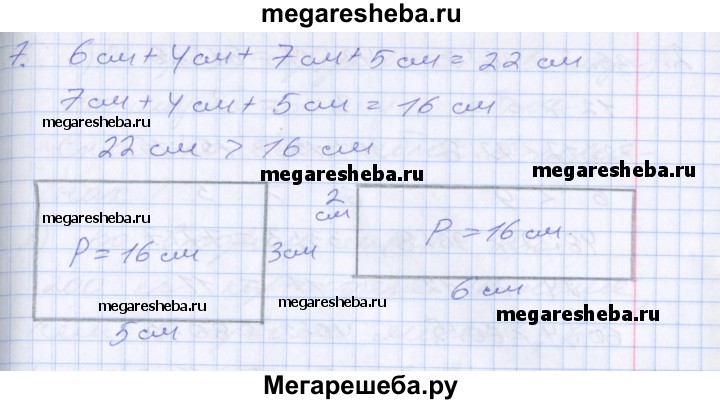 megaresheba.ru
7. 6 см + 4 см + 7 см + 5 см = 22 см
7 см + 4 см + 5 см = 16 см
megaresheba.ru
22 см > 16 см
megaresheba.ru
megaresheba.ru
megaresheba.ru
2 см
P = 16 см
3 см
P = 16 см.
6 см
megaresheba.ru
megaresheba.ru
megaresheba.ru
5 см
Мегарешеба.ру